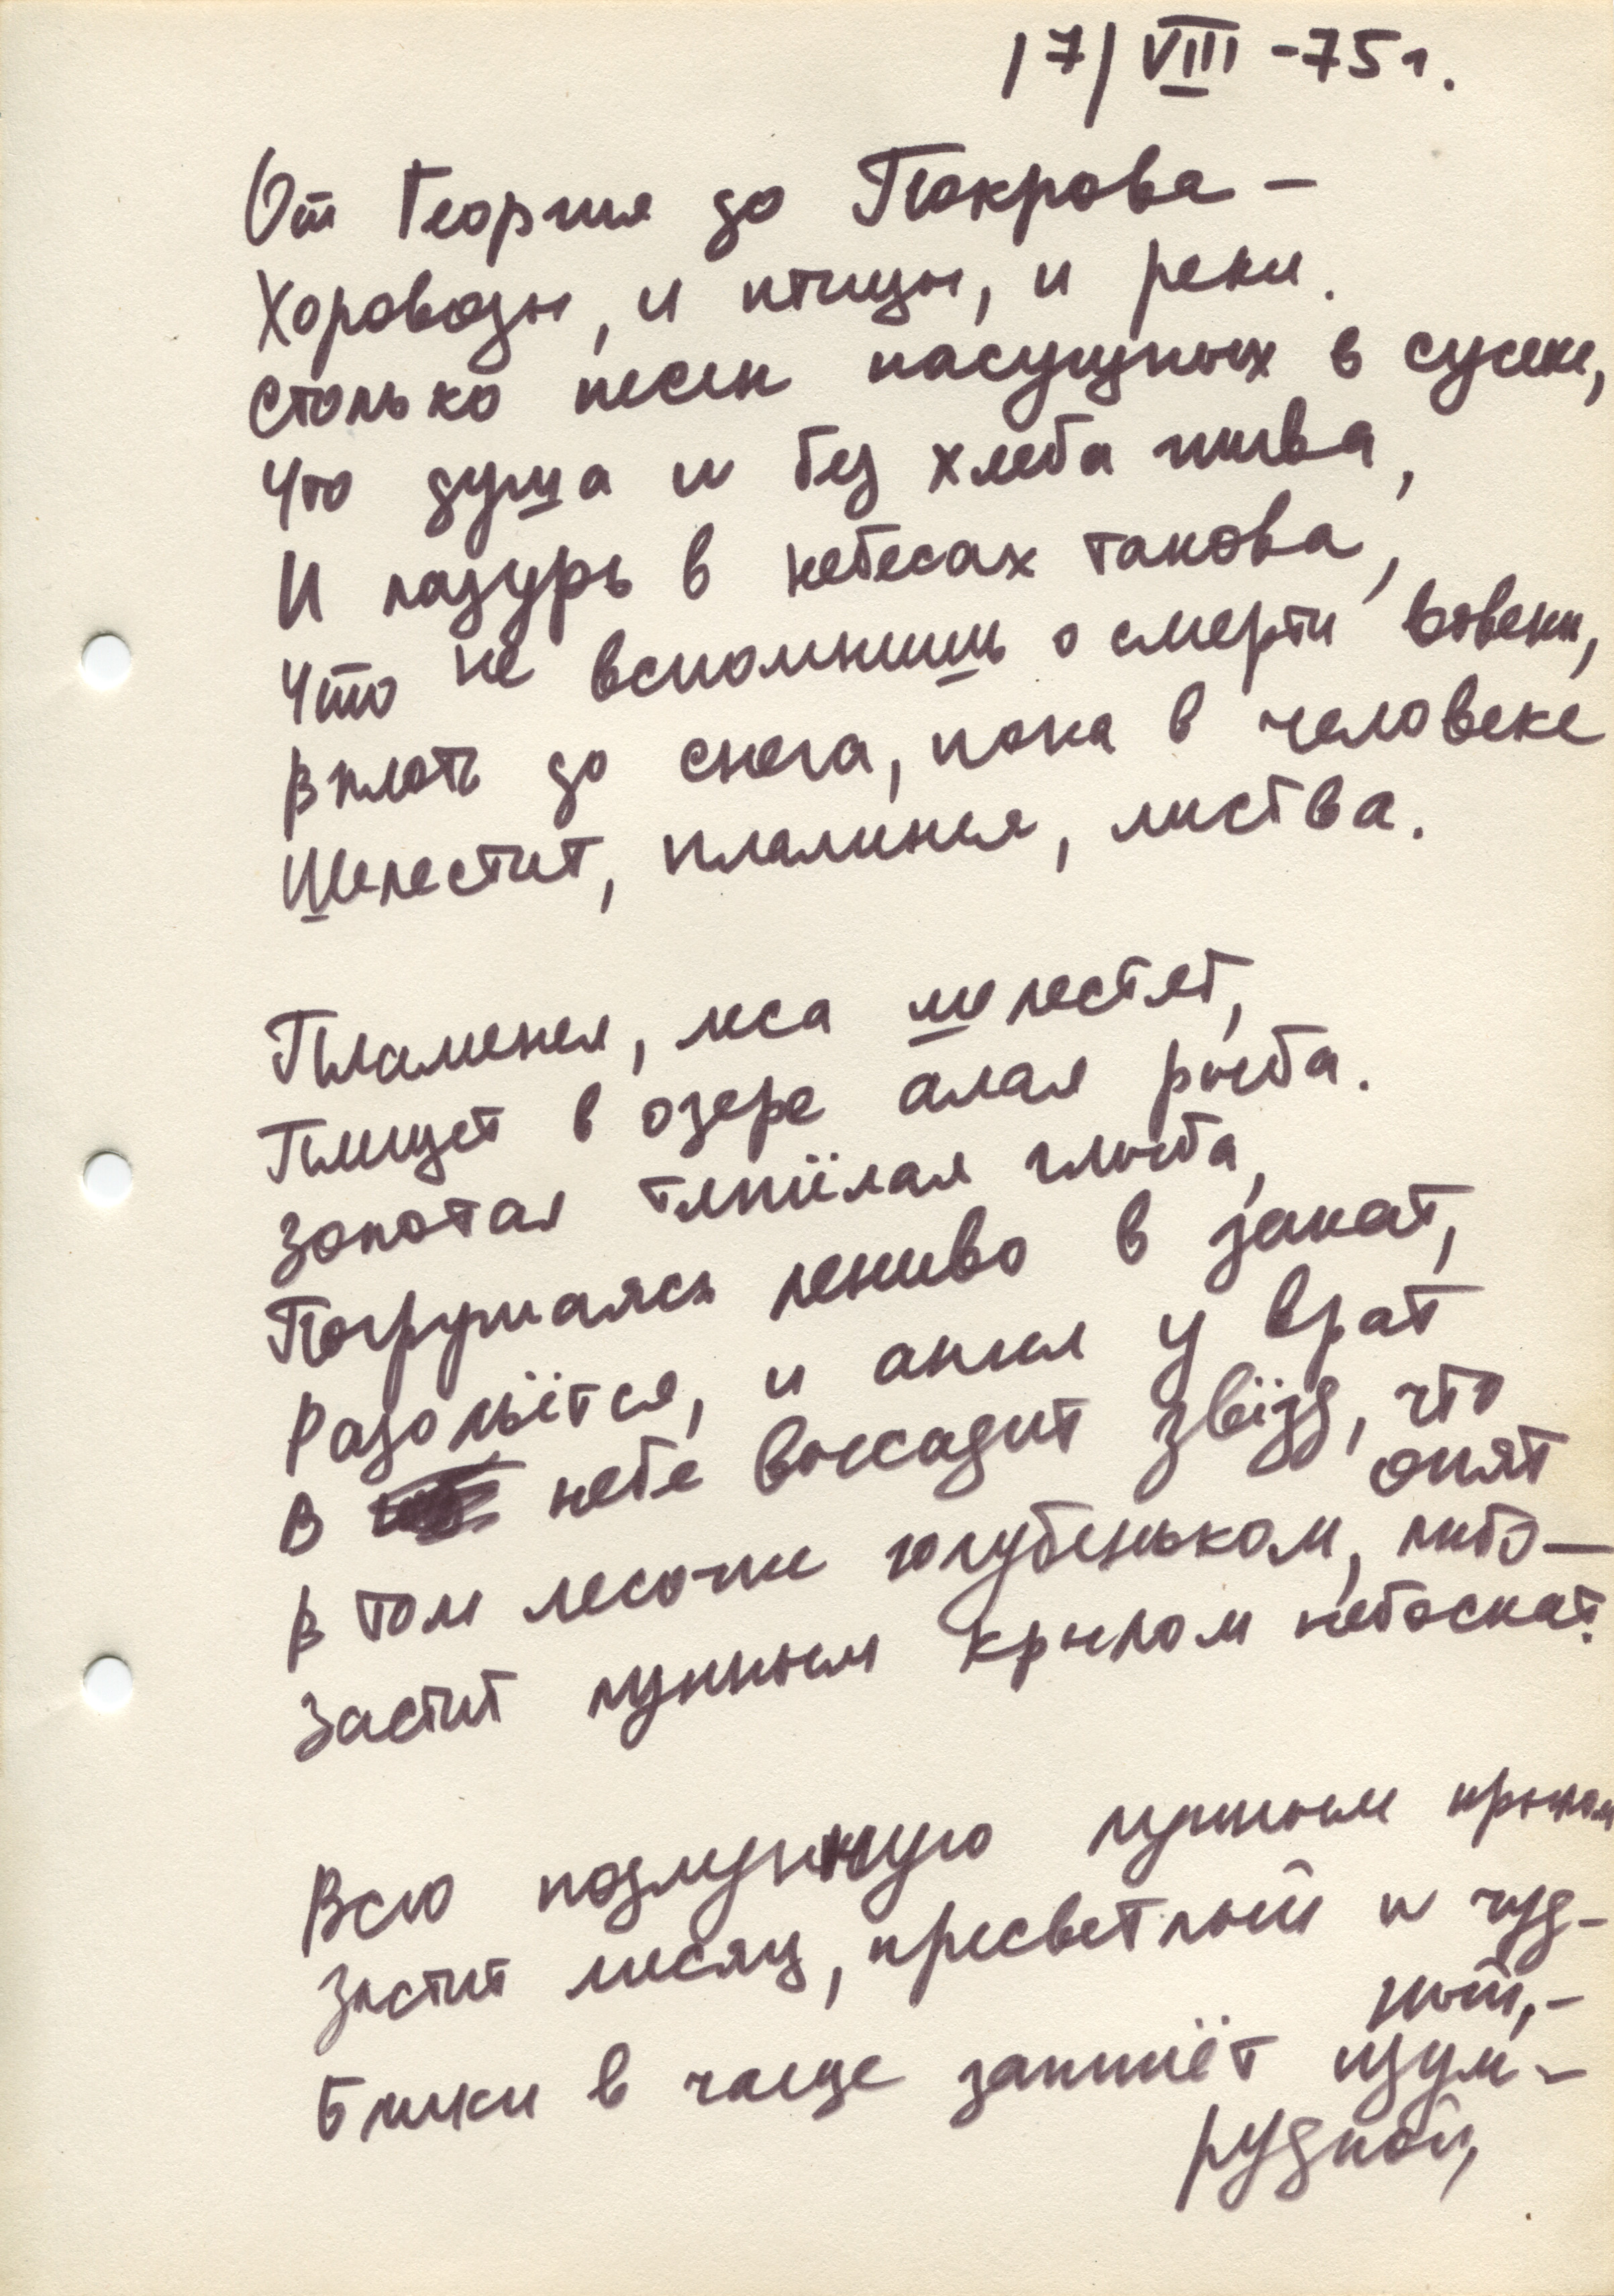 17/VIII-75 г.
От Георгия до Покрова –
Хороводы, и птицы, и реки.
Столько песен насущных в сусеке,
Что душа и без хлеба жива,
И лазурь в небесах такова,
Что не вспомнишь о смерти вовеки,
Вплоть до снега, пока в человеке
Шелестит, пламенея, листва.
Пламенея, леса шелестят,
Плещет в озере алая рыба.
Золотая тяжёлая глыба,
Погружаясь лениво в закат,
Разольётся, и ангел у врат
В небе высадит звёзд, что
опят
В том лесочке голубеньком, либо –
Застит лунным крылом небоскат.
Всю подлунную лунным крылом
Застит месяц, пресветлый и чуд-
ный, –
Блики в чаще зажжёт изум-
рудной,